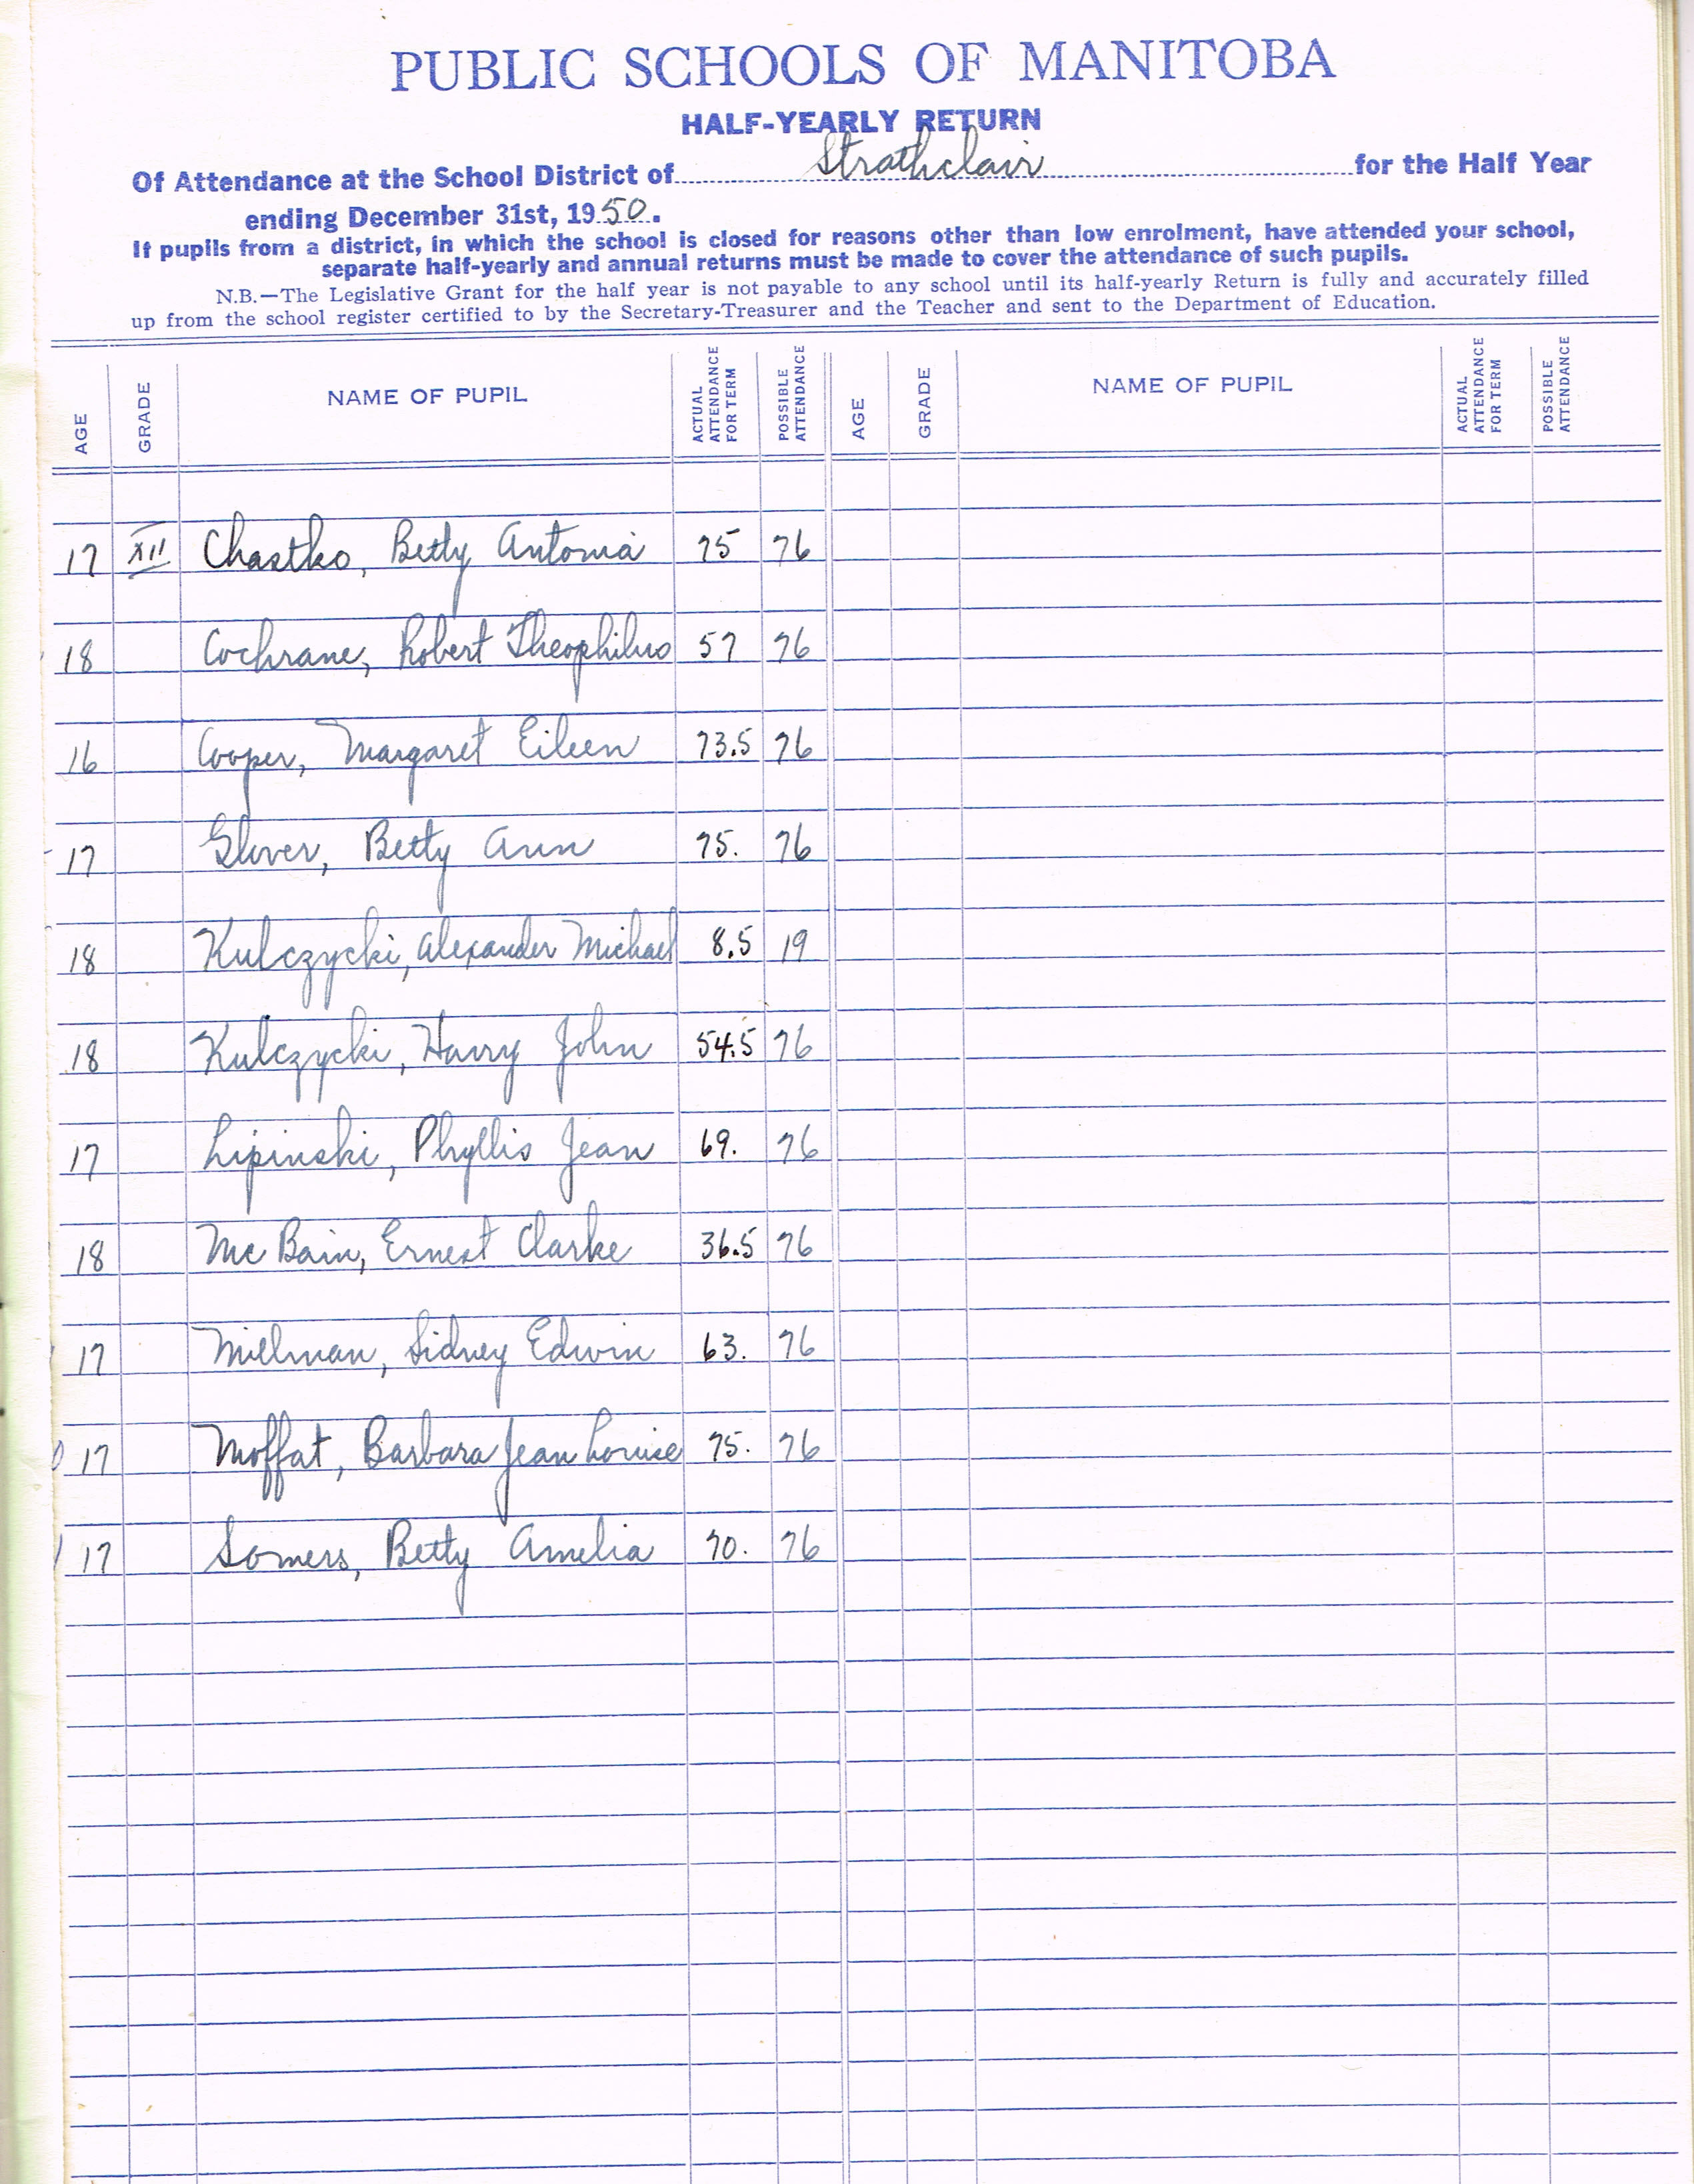 PUBLIC SCHOOLS OF MANITOBA
HALF-YEARLY RETURN
Of Attendance at the School District of Strathclair for the Half Year
ending December 31st, 1950.
If pupils from a district, in which the school is closed for reasons other than low enrolment, have attended your school,
separate half-yearly and annual returns must be made to cover the attendance of such pupils.
N.B.—The Legislative Grant for the half year is not payable to any school until its half-yearly Return is fully and accurately filled
up from the school register certified to by the Secretary-Treasurer and the Teacher and sent to the Department of Education.
AGE GRADE NAME OF PUPIL ACTUAL ATTENDANCE FOR TERM POSSIBLE ATTENDANCE AGE GRADE NAME OF PUPIL ACTUAL ATTENDANCE FOR TERM POSSIBLE ATTENDANCE
17 XII Chastko, Betty Antonia 75 76
18 Cochrane, Robert Theophilus 57 76
16 Cooper, Margaret Eileen 73.5 76
17 Glover, Betty Ann 75. 76
18 Kulczycki, Alexander Michael 8.5 19
18 Kulczycki, Harry John 54.5 76
17 Lipinski, Phyllis Jean 69. 76
18 Mc Bain, Ernest Clarke 36.5 76
17 Millman, Sidney Edwin 63. 76
17 Moffat, Barbara Jean Louise 75. 76
17 Somers, Betty Amelia 70. 76